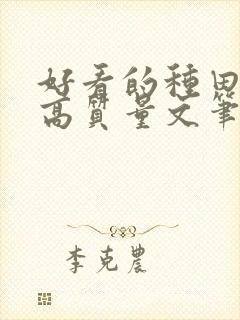 好看的種田
高質量文筆
李克農